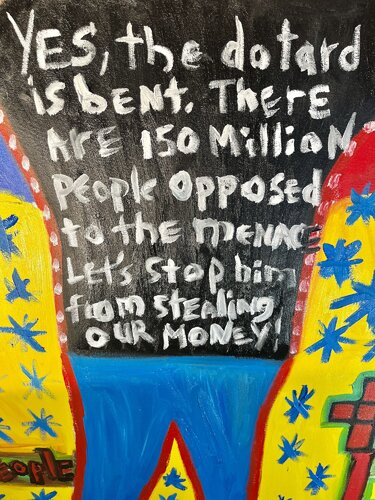 YES, the dotard
is bENT. THERE
ARE 150 MilliON
PEOPLE OPPOSED
to the MENACE
LET'S STOP him
from STEALING
OUR MONEY!
EOPLE